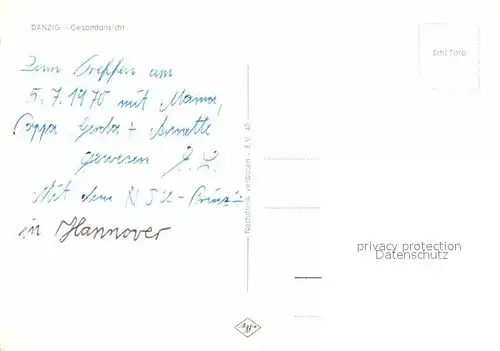 DANZIG - Gesamtansicht
Echt Foto
Zum Treffen am
5.7.1970 mit Mama,
Pappa Gerda + Annette
gewesen
Mit dem NSU-Prinz
in Hannover
Nachdruck verboten - E.V. 40
privacy protection
Datenschutz
Agfa